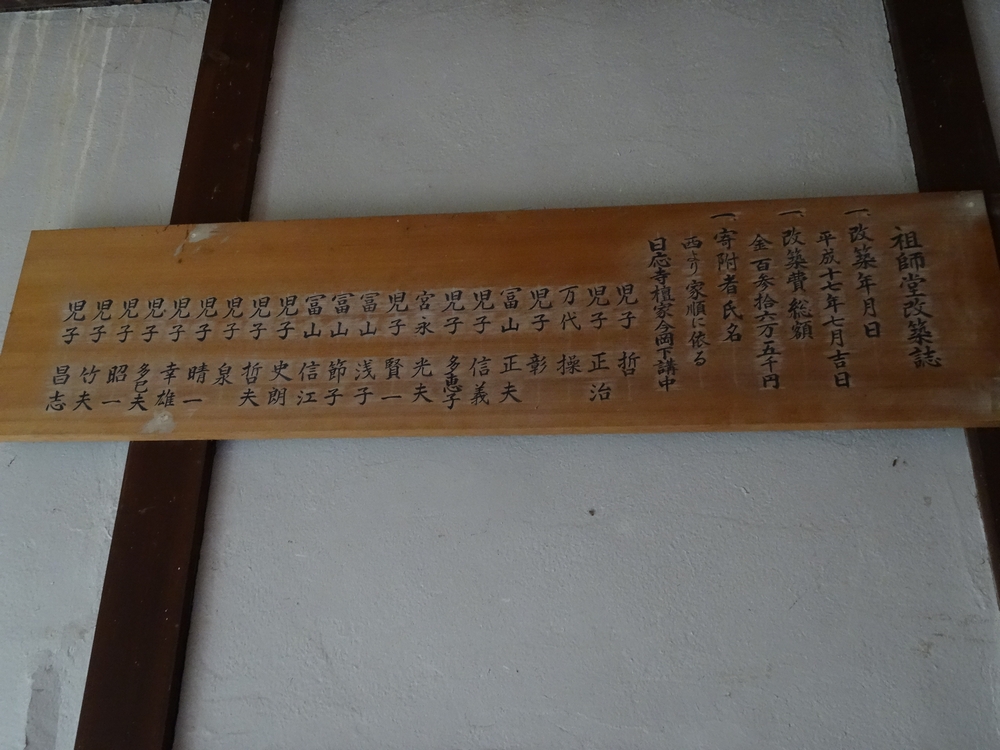 祖師堂改築誌
一、改築年月日
平成十七年七月吉日
一、改築費総額
金百参拾六万五千円
一、寄附者氏名
西より家順に依る
日応寺檀家今岡下講中
児子 哲
児子 正治
万代 操
児子 彰
冨山 正夫
児子 信義
児子 多恵子
宮永 光夫
児子 賢一
冨山 浅子
冨山 節子
冨山 信江
児子 史朗
児子 哲夫
児子 泉
児子 晴一
児子 幸雄
児子 多巳夫
児子 昭一
児子 竹夫
児子 昌志